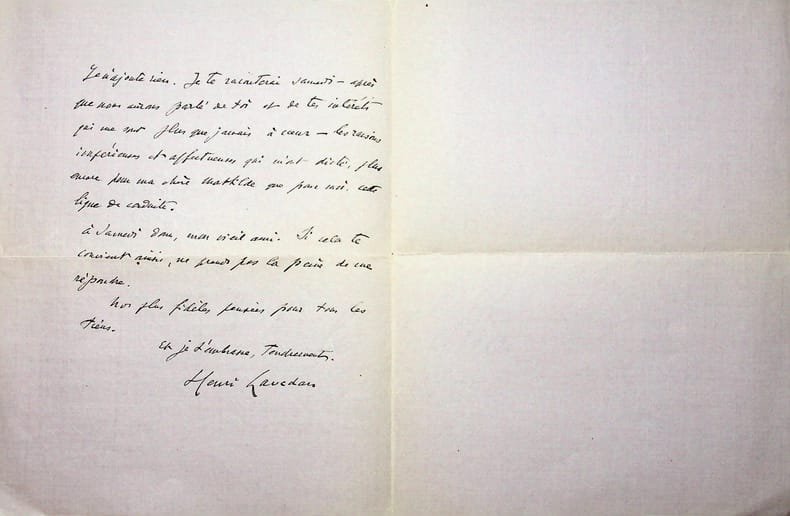 Je n'ajoute rien. Je te raconterai samedi – après
que nous aurons parlé de toi et de tes intérêts
qui me sont plus que jamais à cœur – les raisons
impérieuses et affectueuses qui m'ont dicté, plus
encore pour ma chère Mathilde que pour moi, cette
ligne de conduite.
à Samedi donc, mon vieil ami. Si cela te
convient ainsi, ne prends pas la peine de me
répondre.
Nos plus fidèles pensées pour tous les
tiens.
Et je t'embrasse, tendrement.
Henri Lavedan